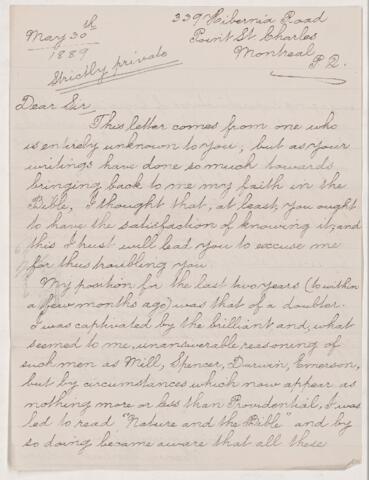 339 Hibernia Road
May 30th
Point St. Charles
1889
Montreal
Strictly private
P.Q.
Dear Sir
This letter comes from one who
is entirely unknown to you; but as your
writings have done so much towards
bringing back to me my faith in the
Bible, I thought that, at least, you ought
to have the satisfaction of knowing it, and
this I trust will lead you to excuse me
for thus troubling you.
My position for the last two years (to within
a few months ago) was that of a doubter.
I was captivated by the brilliant and, what
seemed to me, unanswerable reasoning of
such men as Mill, Spencer, Darwin, Emerson,
but by circumstances which now appear as
nothing more or less than Providential, I was
led to read "Nature and the Bible" and by
so doing became aware that all these